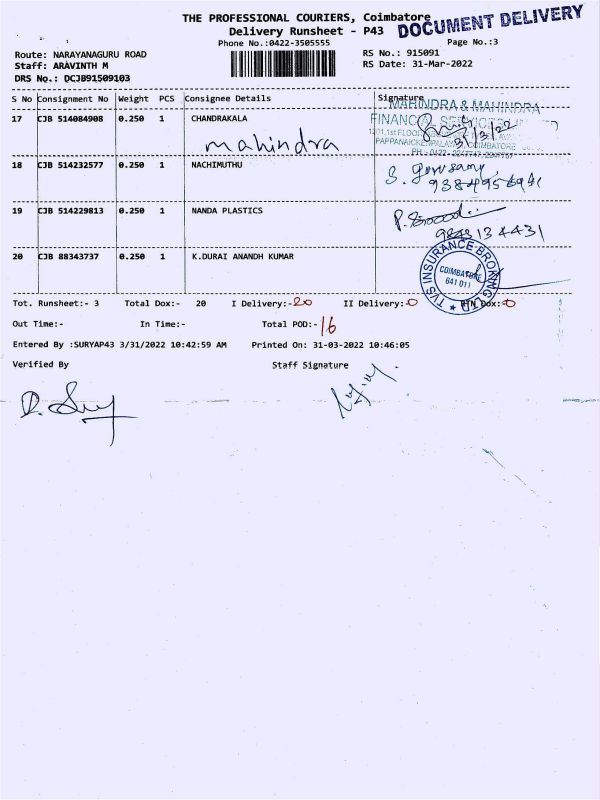 THE PROFESSIONAL COURIERS, Coimbatore
DOCUMENT DELIVERY
Delivery Runsheet - P43
Phone No.:0422-3505555
Page No.:3
Route: NARAYANAGURU ROAD
RS No.: 915091
Staff: ARAVINTH M
RS Date: 31-Mar-2022
DRS No.: DCJB91509103
S No Consignment No Weight PCS Consignee Details Signature
MAHINDRA & MAHINDRA
17 CJB 514084908 0.250 1 CHANDRAKALA
FINANCIAL SERVICES
31/3/22
mahindra
COIMBATORE
18 CJB 514232577 0.250 1 NACHIMUTHU
19 CJB 514229813 0.250 1 NANDA PLASTICS
20 CJB 88343737 0.250 1 K.DURAI ANANDH KUMAR
TVS INSURANCE BROKING LTD
COIMBATORE
641 011
Tot. Runsheet:- 3 Total Dox:- 20 I Delivery:-20 II Delivery:-0 RTN Dox:-0
Out Time:- In Time:- Total POD:- 16
Entered By :SURYAP43 3/31/2022 10:42:59 AM Printed On: 31-03-2022 10:46:05
Verified By Staff Signature